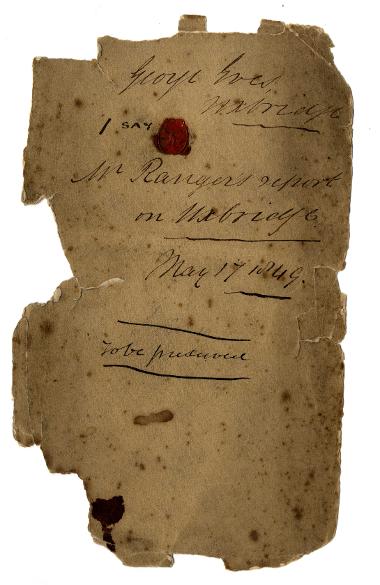 George Eves
Uxbridge
I SAY
Mr Rangers report
on Uxbridge
May 17 1849.
To be preserved